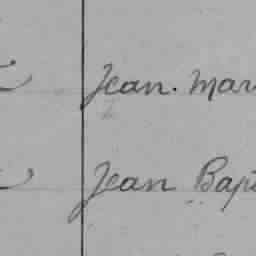 Jean. Mar
Jean Bap